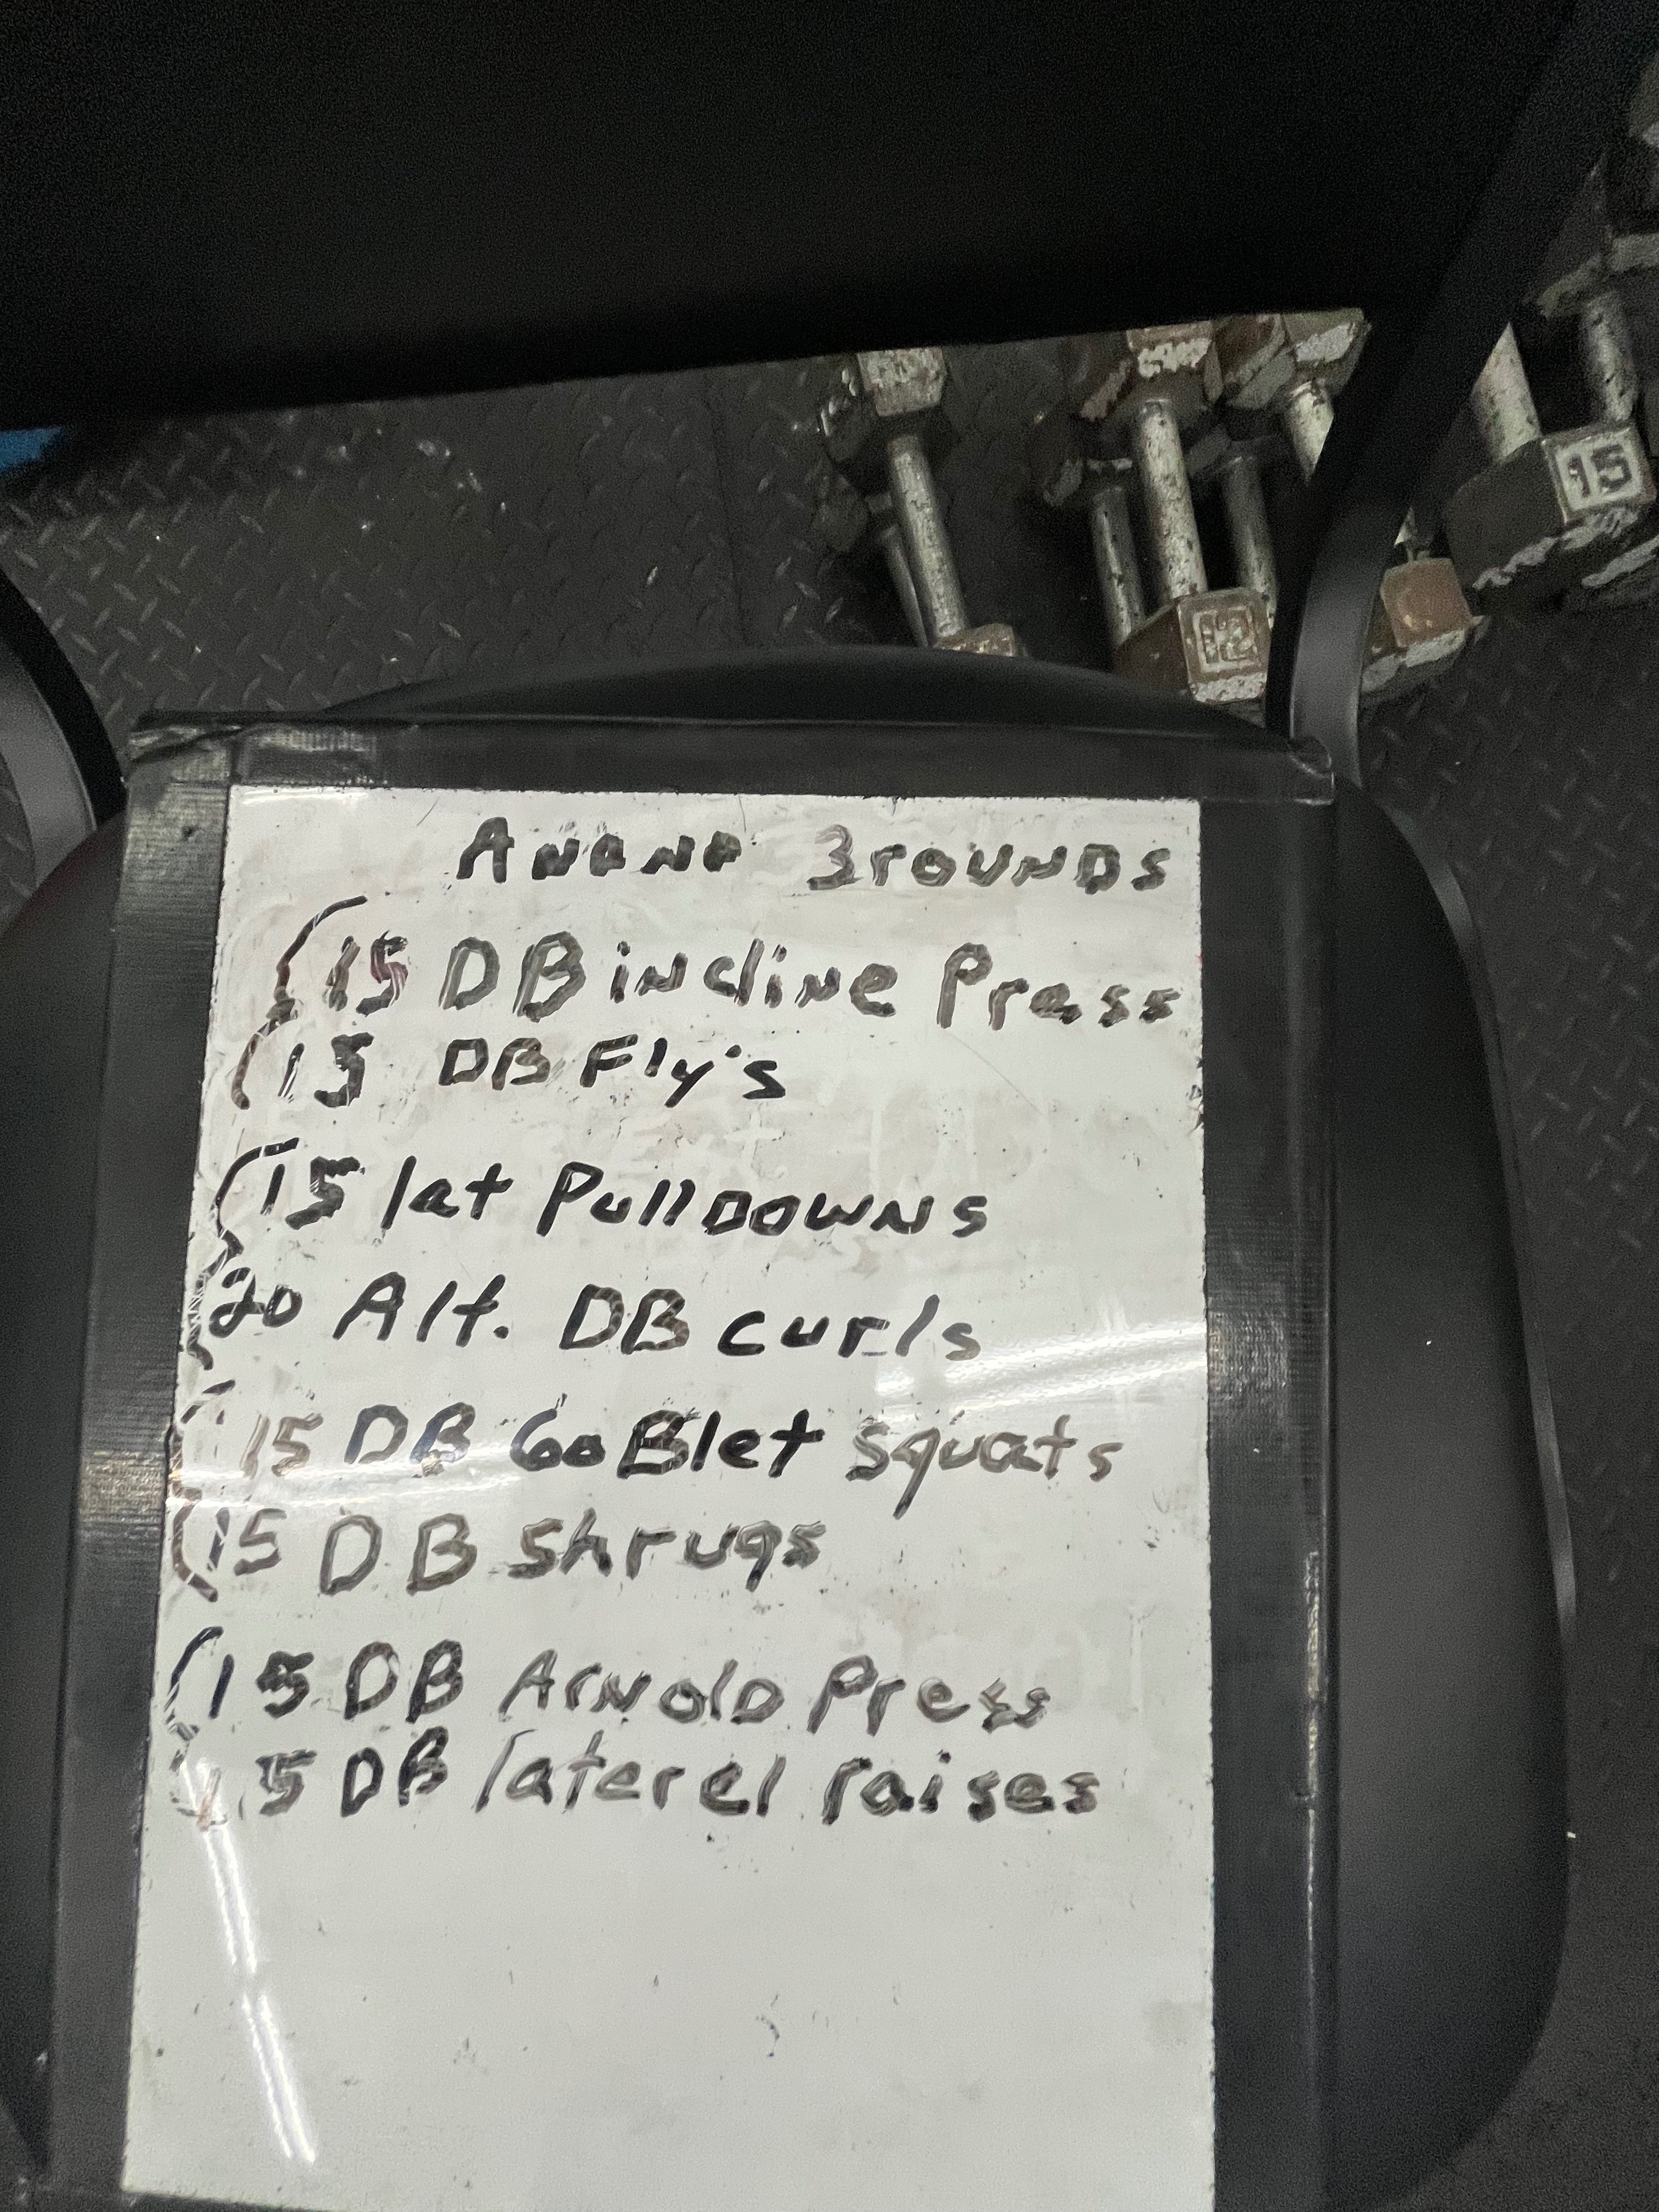 15
12
ANAND 3ROUNDS
15 DB incline Press
15 DB Fly's
15 lat PullDOWNS
20 Alt. DB curls
15 DB GoBlet squats
15 DB shrugs
15 DB ArNolD Press
15 DB laterel raises